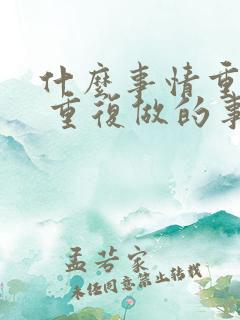 什麼事情重
重復做的事
孟若家
未经同意禁止转载